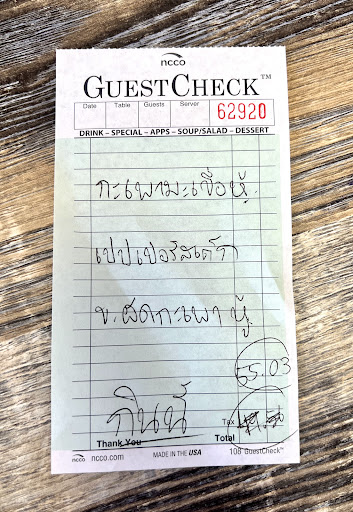 ncco
GUESTCHECK™
Date Table Guests Server 62920
DRINK – SPECIAL – APPS – SOUP/SALAD – DESSERT
กะเพามะเขือหมู
เปปเปอร์สเต็ก
ข. ผัดกะเพา หมู
55.03
กินนี่
Tax
Thank You Total
ncco ncco.com MADE IN THE USA 108 GuestCheck™